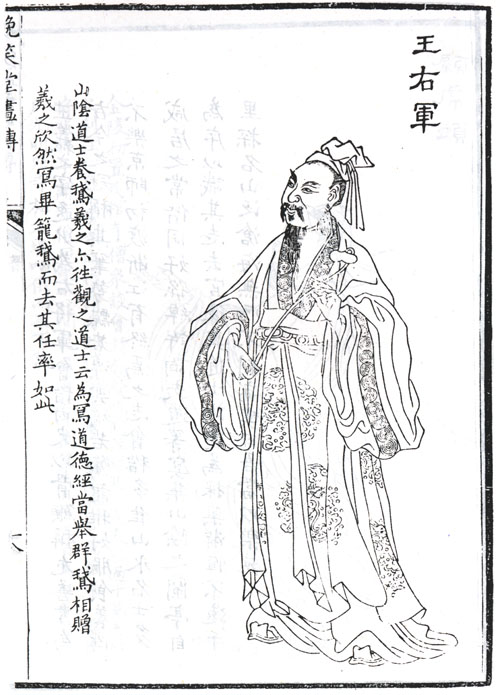 王右軍
山陰道士養鵞羲之亦往觀之道士云為寫道德經當舉群鵞相贈
羲之欣然寫畢籠鵞而去其任率如此
晚笑堂畫傳